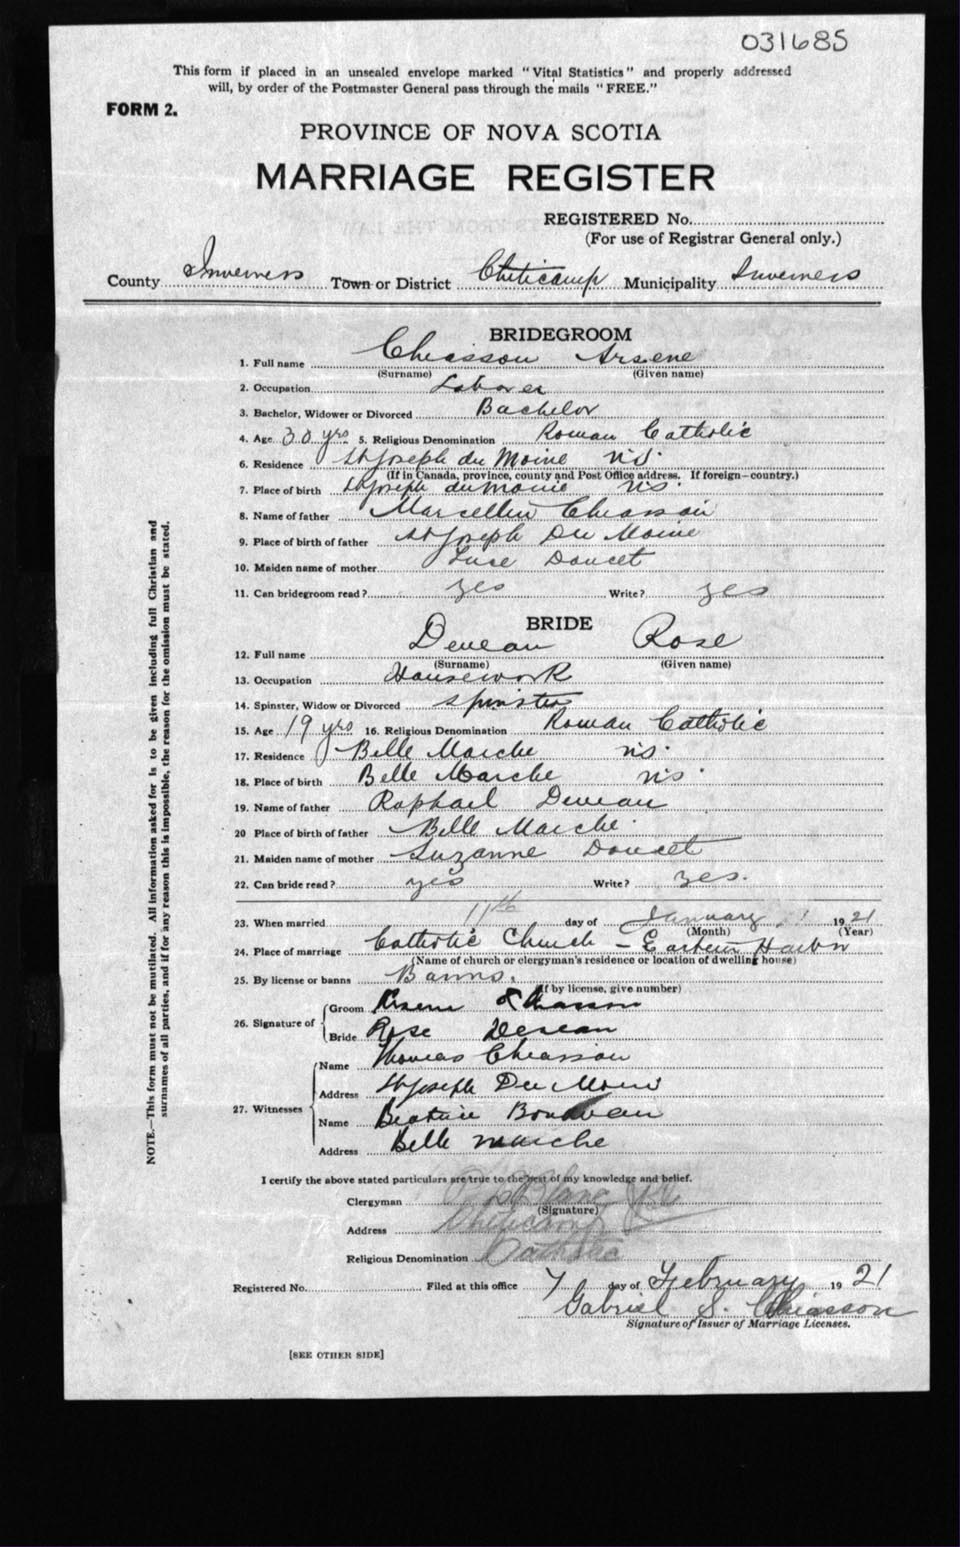 031685
This form if placed in an unsealed envelope marked "Vital Statistics" and properly addressed
will, by order of the Postmaster General pass through the mails "FREE."
FORM 2.
PROVINCE OF NOVA SCOTIA
MARRIAGE REGISTER
REGISTERED No.
(For use of Registrar General only.)
County Inverness Town or District Cheticamp Municipality Inverness
BRIDEGROOM
1. Full name Chiasson Arsene
(Surname) (Given name)
2. Occupation Laborer
3. Bachelor, Widower or Divorced Bachelor
4. Age 30 yrs 5. Religious Denomination Roman Catholic
6. Residence St Joseph du Moine N.S.
(If in Canada, province, county and Post Office address. If foreign—country.)
7. Place of birth St Joseph du Moine N.S.
8. Name of father Marcellin Chiasson
9. Place of birth of father St Joseph Du Moine
10. Maiden name of mother Luce Doucet
11. Can bridegroom read? yes Write? yes
BRIDE
12. Full name Deveau Rose
(Surname) (Given name)
13. Occupation Housework
14. Spinster, Widow or Divorced spinster
15. Age 19 yrs 16. Religious Denomination Roman Catholic
17. Residence Belle Marche N.S.
18. Place of birth Belle Marche N.S.
19. Name of father Raphael Deveau
20 Place of birth of father Belle Marche
21. Maiden name of mother Suzanne Doucet
22. Can bride read? yes Write? yes.
23. When married 11th day of January 1921
(Month) (Year)
24. Place of marriage Catholic Church - Eastern Harbor
(Name of church or clergyman's residence or location of dwelling house)
25. By license or banns Banns.
(If by license, give number)
26. Signature of Groom Arsene Chiasson
Bride Rose Deveau
27. Witnesses Name Thomas Chiasson
Address St Joseph Du Moine
Name Beatrice
Address Belle marche
I certify the above stated particulars are true to the best of my knowledge and belief.
Clergyman
(Signature)
Address Cheticamp
Religious Denomination Catholic
Registered No. Filed at this office 7 day of February 1921
Gabriel S. Chiasson
Signature of Issuer of Marriage Licenses.
[SEE OTHER SIDE]
NOTE.—This form must not be mutilated. All information asked for is to be given including full Christian and
surnames of all parties, and if for any reason this is impossible, the reason for the omission must be stated.